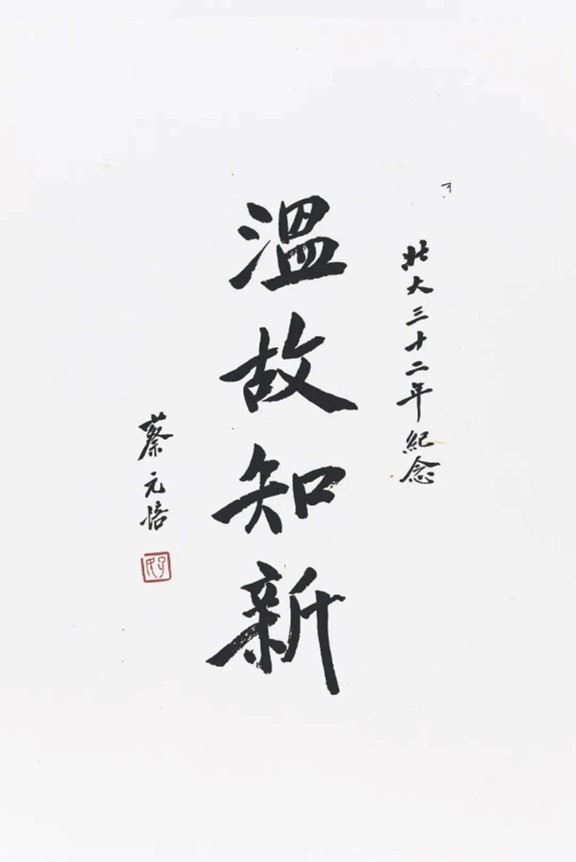 北大三十二年紀念
溫故知新
蔡元培